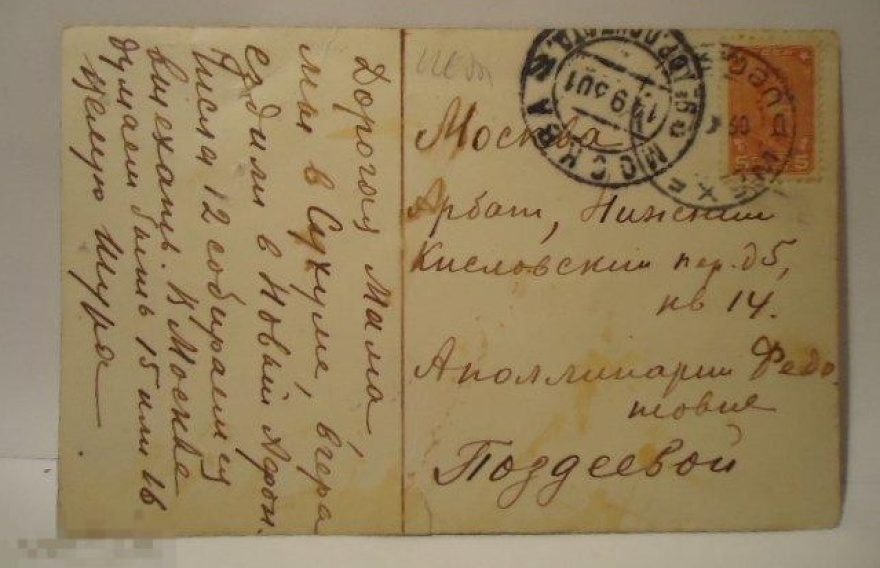 Дорогая Мама,
мы в Сухуме, вчера
ездили в Новый Афон.
Числа 12 собираемся
выехать. В Москве
думаем быть 15 или 16
целую Шура
Москва
Арбат, Нижний
Кисловский пер. д 5,
кв 14.
Аполлинарии Федо
товне
Поздеевой
МОСКВА
5 5